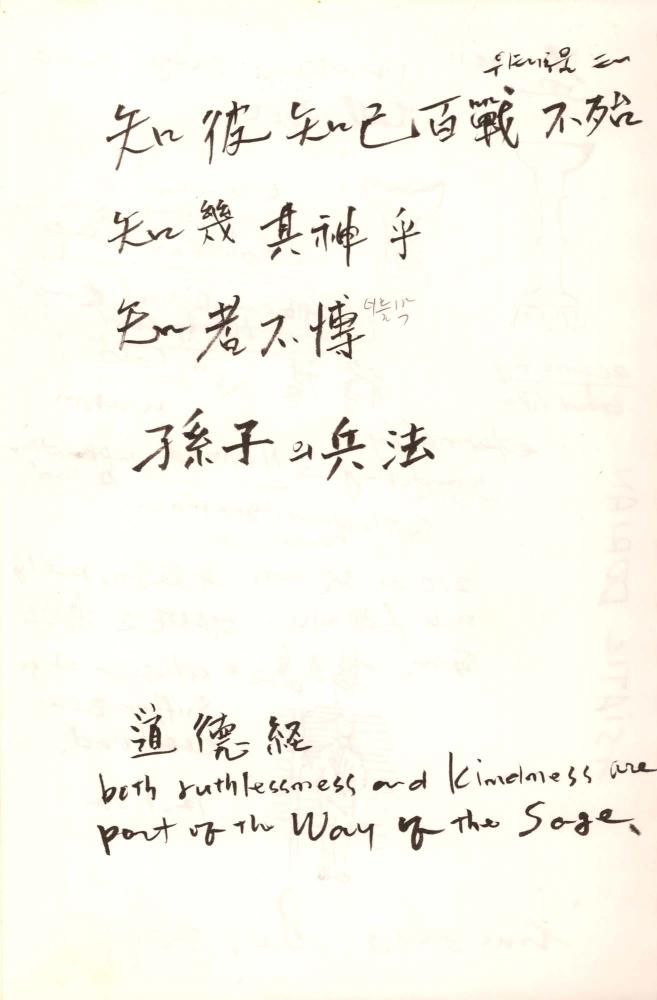 위태로울 태
知彼知己百戰不殆
知幾其神乎
知者不博 넓을 박
孫子의兵法
道德経
both ruthlessness and kindness are
part of the Way of the Sage.